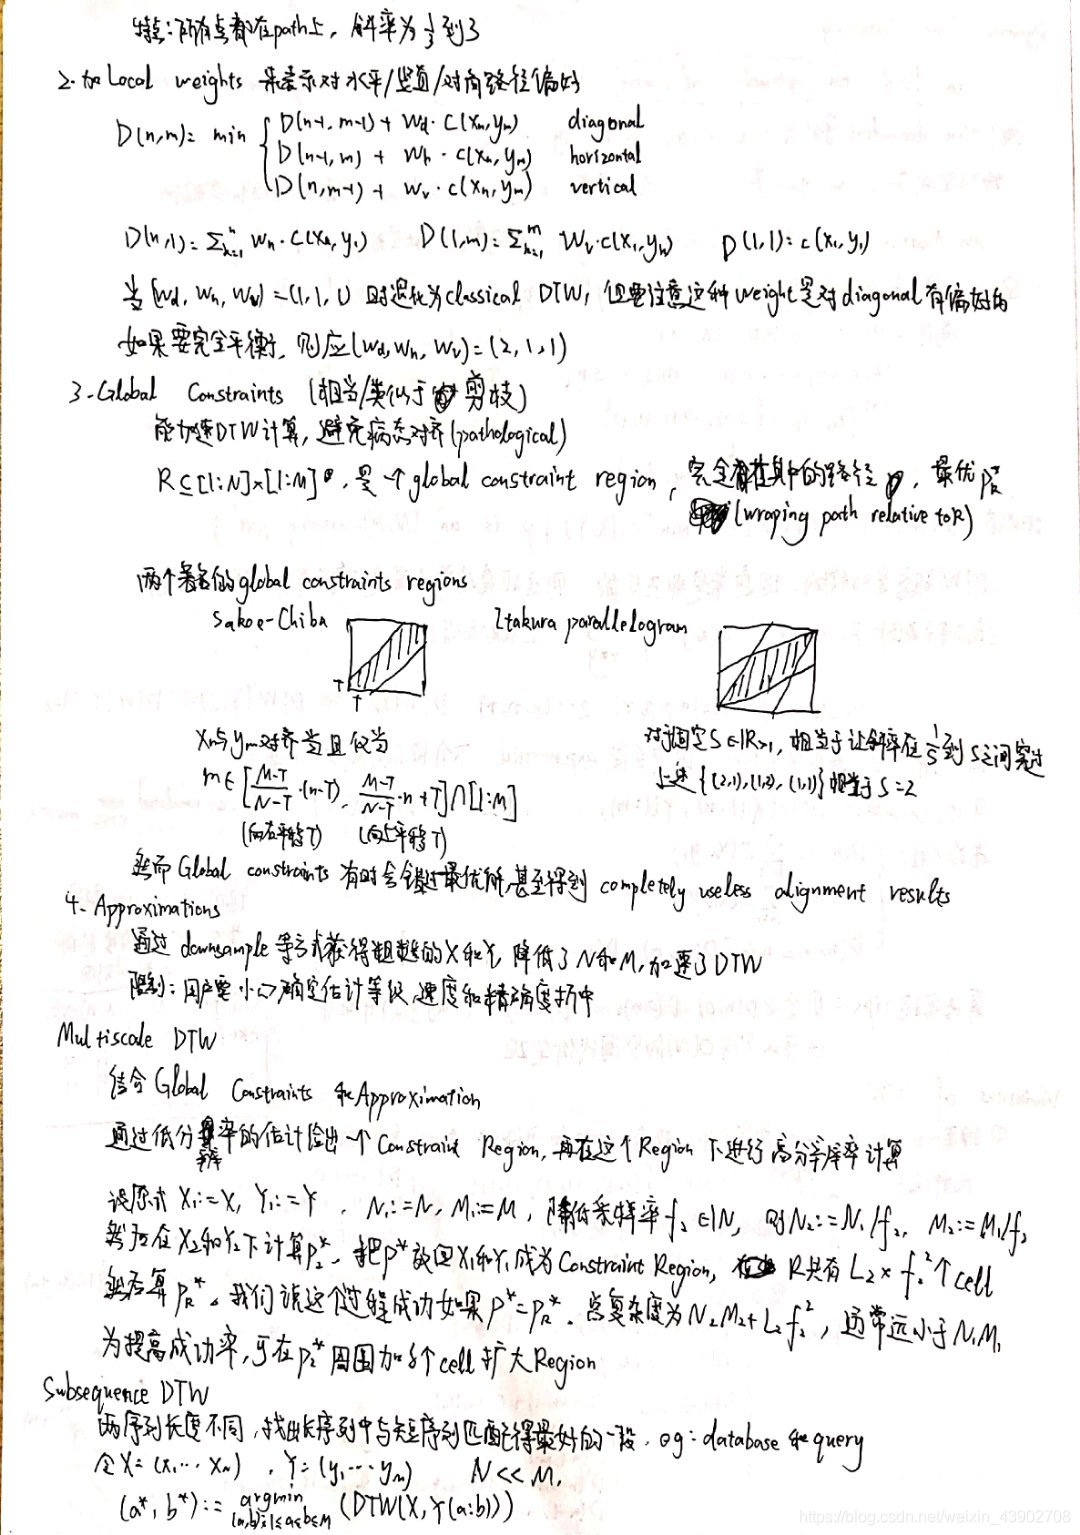 特点：所有点都在path上，斜率为 1/3 到3
2. 加Local weights 来表示对水平/竖直/对角路径偏好
D(n,m) = min { D(n-1, m-1) + Wd · C(xn, ym) diagonal
D(n-1, m) + Wh · c(xn, ym) horizontal
D(n, m-1) + Wv · c(xn, ym) vertical
D(n,1) = Σ_{k=1}^{n} Wh · C(xk, y1) D(1,m) = Σ_{k=1}^{m} Wv · c(x1, yk) D(1,1) = c(x1, y1)
当 (Wd, Wh, Wv) = (1, 1, 1) 时退化为classical DTW，但要注意这种weight是对diagonal有偏好的
如果要完全平衡，则应(Wd, Wh, Wv) = (2, 1, 1)
3. Global Constraints (相当/类似于 剪枝)
能加速DTW计算，避免病态对齐(pathological)
R⊆[1:N]×[1:M]，是一个global constraint region，完全在其中的路径，最优 P*R
(wraping path relative to R)
两个著名的global constraints regions
Sakoe-Chiba Itakura parallelogram
T
T
Xn与ym对齐当且仅当
m∈[(M-T)/(N-T) · (n-T), (M-T)/(N-T) · n + T]∩[1:M]
(向右平移T) (向上平移T)
对于固定S∈IR>1，相当于让斜率在 1/S 到 S之间穿过
上述{(2,1), (1,2), (1,1)}相当于 S=2
然而Global constraints 有时会错过最优解，甚至得到 completely useless alignment results
4. Approximations
通过 downsample 等方式获得粗糙的X和Y，降低了N和M，加速了DTW
限制：用户要小心确定估计等级，速度和精确度折中
Multiscale DTW
结合Global Constraints 和Approximation
通过低分辨率的估计给出一个Constraint Region，再在这个Region下进行高分辨率计算
设原式 X1:=X, Y1:=Y， N1:=N, M1:=M，降低采样率 f2∈IN，则N2:=N1/f2, M2:=M1/f2
然后在X2和Y2下计算P2*，把P*放回X1和Y1成为Constraint Region，R共有 L2 × f2² 个cell
然后算 PR*。我们说这个过程成功如果 P*=PR*。总复杂度为N2M2+L2f2²，通常远小于N1M1
为提高成功率，可在P2*周围加δ个cell扩大Region
Subsequence DTW
两序列长度不同，找出长序列中与短序列匹配得最好的一段。eg: database 和 query
令X=(x1…xN)，Y=(y1…yM) N<<M,
(a*, b*) := argmin (DTW(X, Y(a:b)))
(a,b):1≤a≤b≤M
https://blog.csdn.net/weixin_43902708